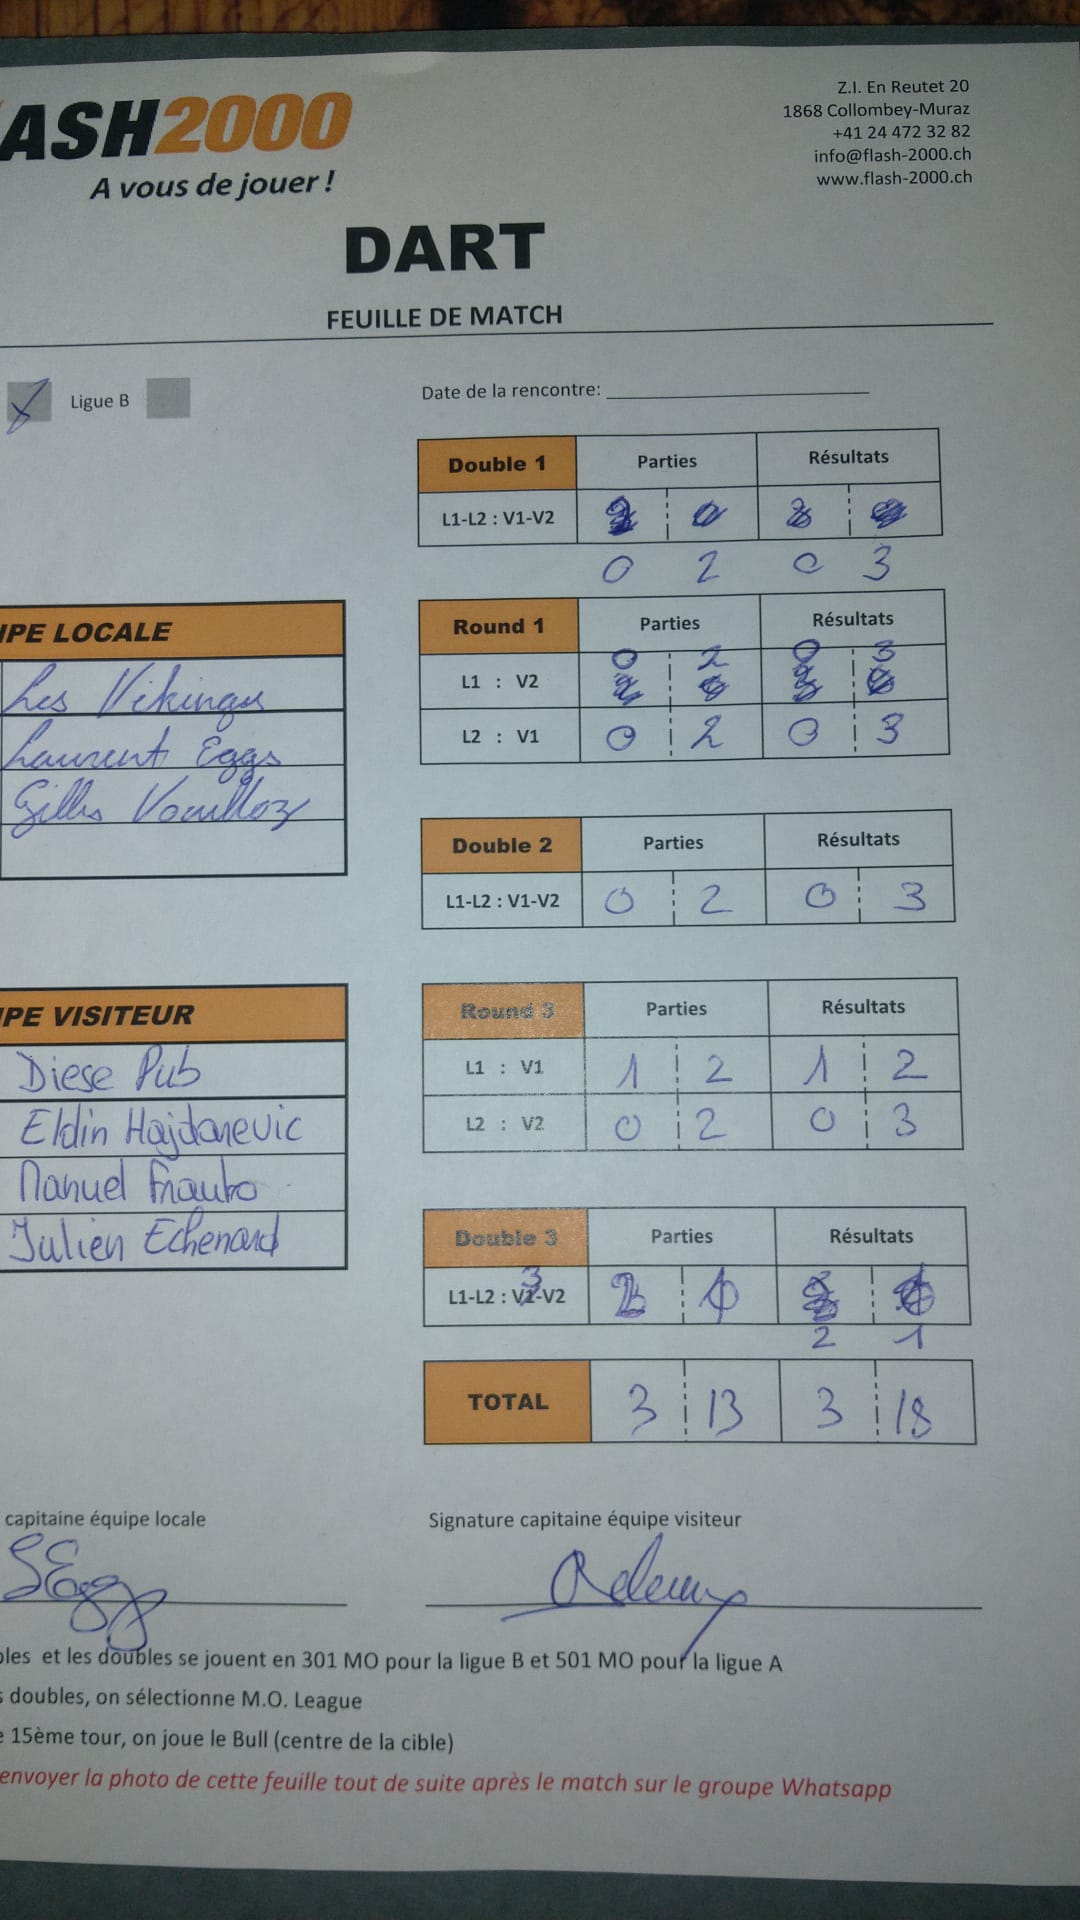 ASH2000
A vous de jouer !
Z.I. En Reutet 20
1868 Collombey-Muraz
+41 24 472 32 82
info@flash-2000.ch
www.flash-2000.ch
DART
FEUILLE DE MATCH
Ligue B
Date de la rencontre:
Double 1 Parties Résultats
L1-L2 : V1-V2
0 2 0 3
IPE LOCALE
Les Vikings
Laurent Eggs
Gilles Vouilloz
Round 1 Parties Résultats
0 2 0 3
L1 : V2
L2 : V1 0 2 0 3
Double 2 Parties Résultats
L1-L2 : V1-V2 0 2 0 3
IPE VISITEUR
Diese Pub
Eldin Hajdarevic
Manuel
Julien Echenard
Round 3 Parties Résultats
L1 : V1 1 2 1 2
L2 : V2 0 2 0 3
Double 3 Parties Résultats
3
L1-L2 : V1-V2 2 1
2 1
TOTAL 3 13 3 18
capitaine équipe locale
Signature capitaine équipe visiteur
bles et les doubles se jouent en 301 MO pour la ligue B et 501 MO pour la ligue A
s doubles, on sélectionne M.O. League
e 15ème tour, on joue le Bull (centre de la cible)
envoyer la photo de cette feuille tout de suite après le match sur le groupe Whatsapp